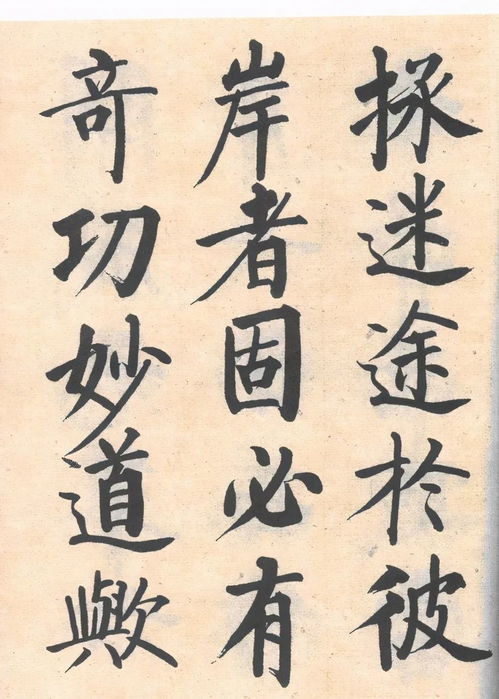 拯迷途於彼
岸者固必有
奇功妙道歟